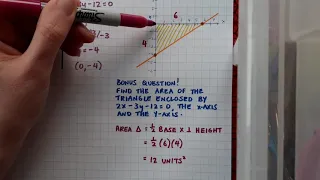 -12=0
/-3
= -4
(0,-4)
6
4
BONUS QUESTION!
FIND THE AREA OF THE
TRIANGLE ENCLOSED BY
2x-3y-12=0, THE X-AXIS
AND THE Y-AXIS.
AREA Δ = ½ BASE × ⊥ HEIGHT
= ½ (6)(4)
= 12 UNITS²